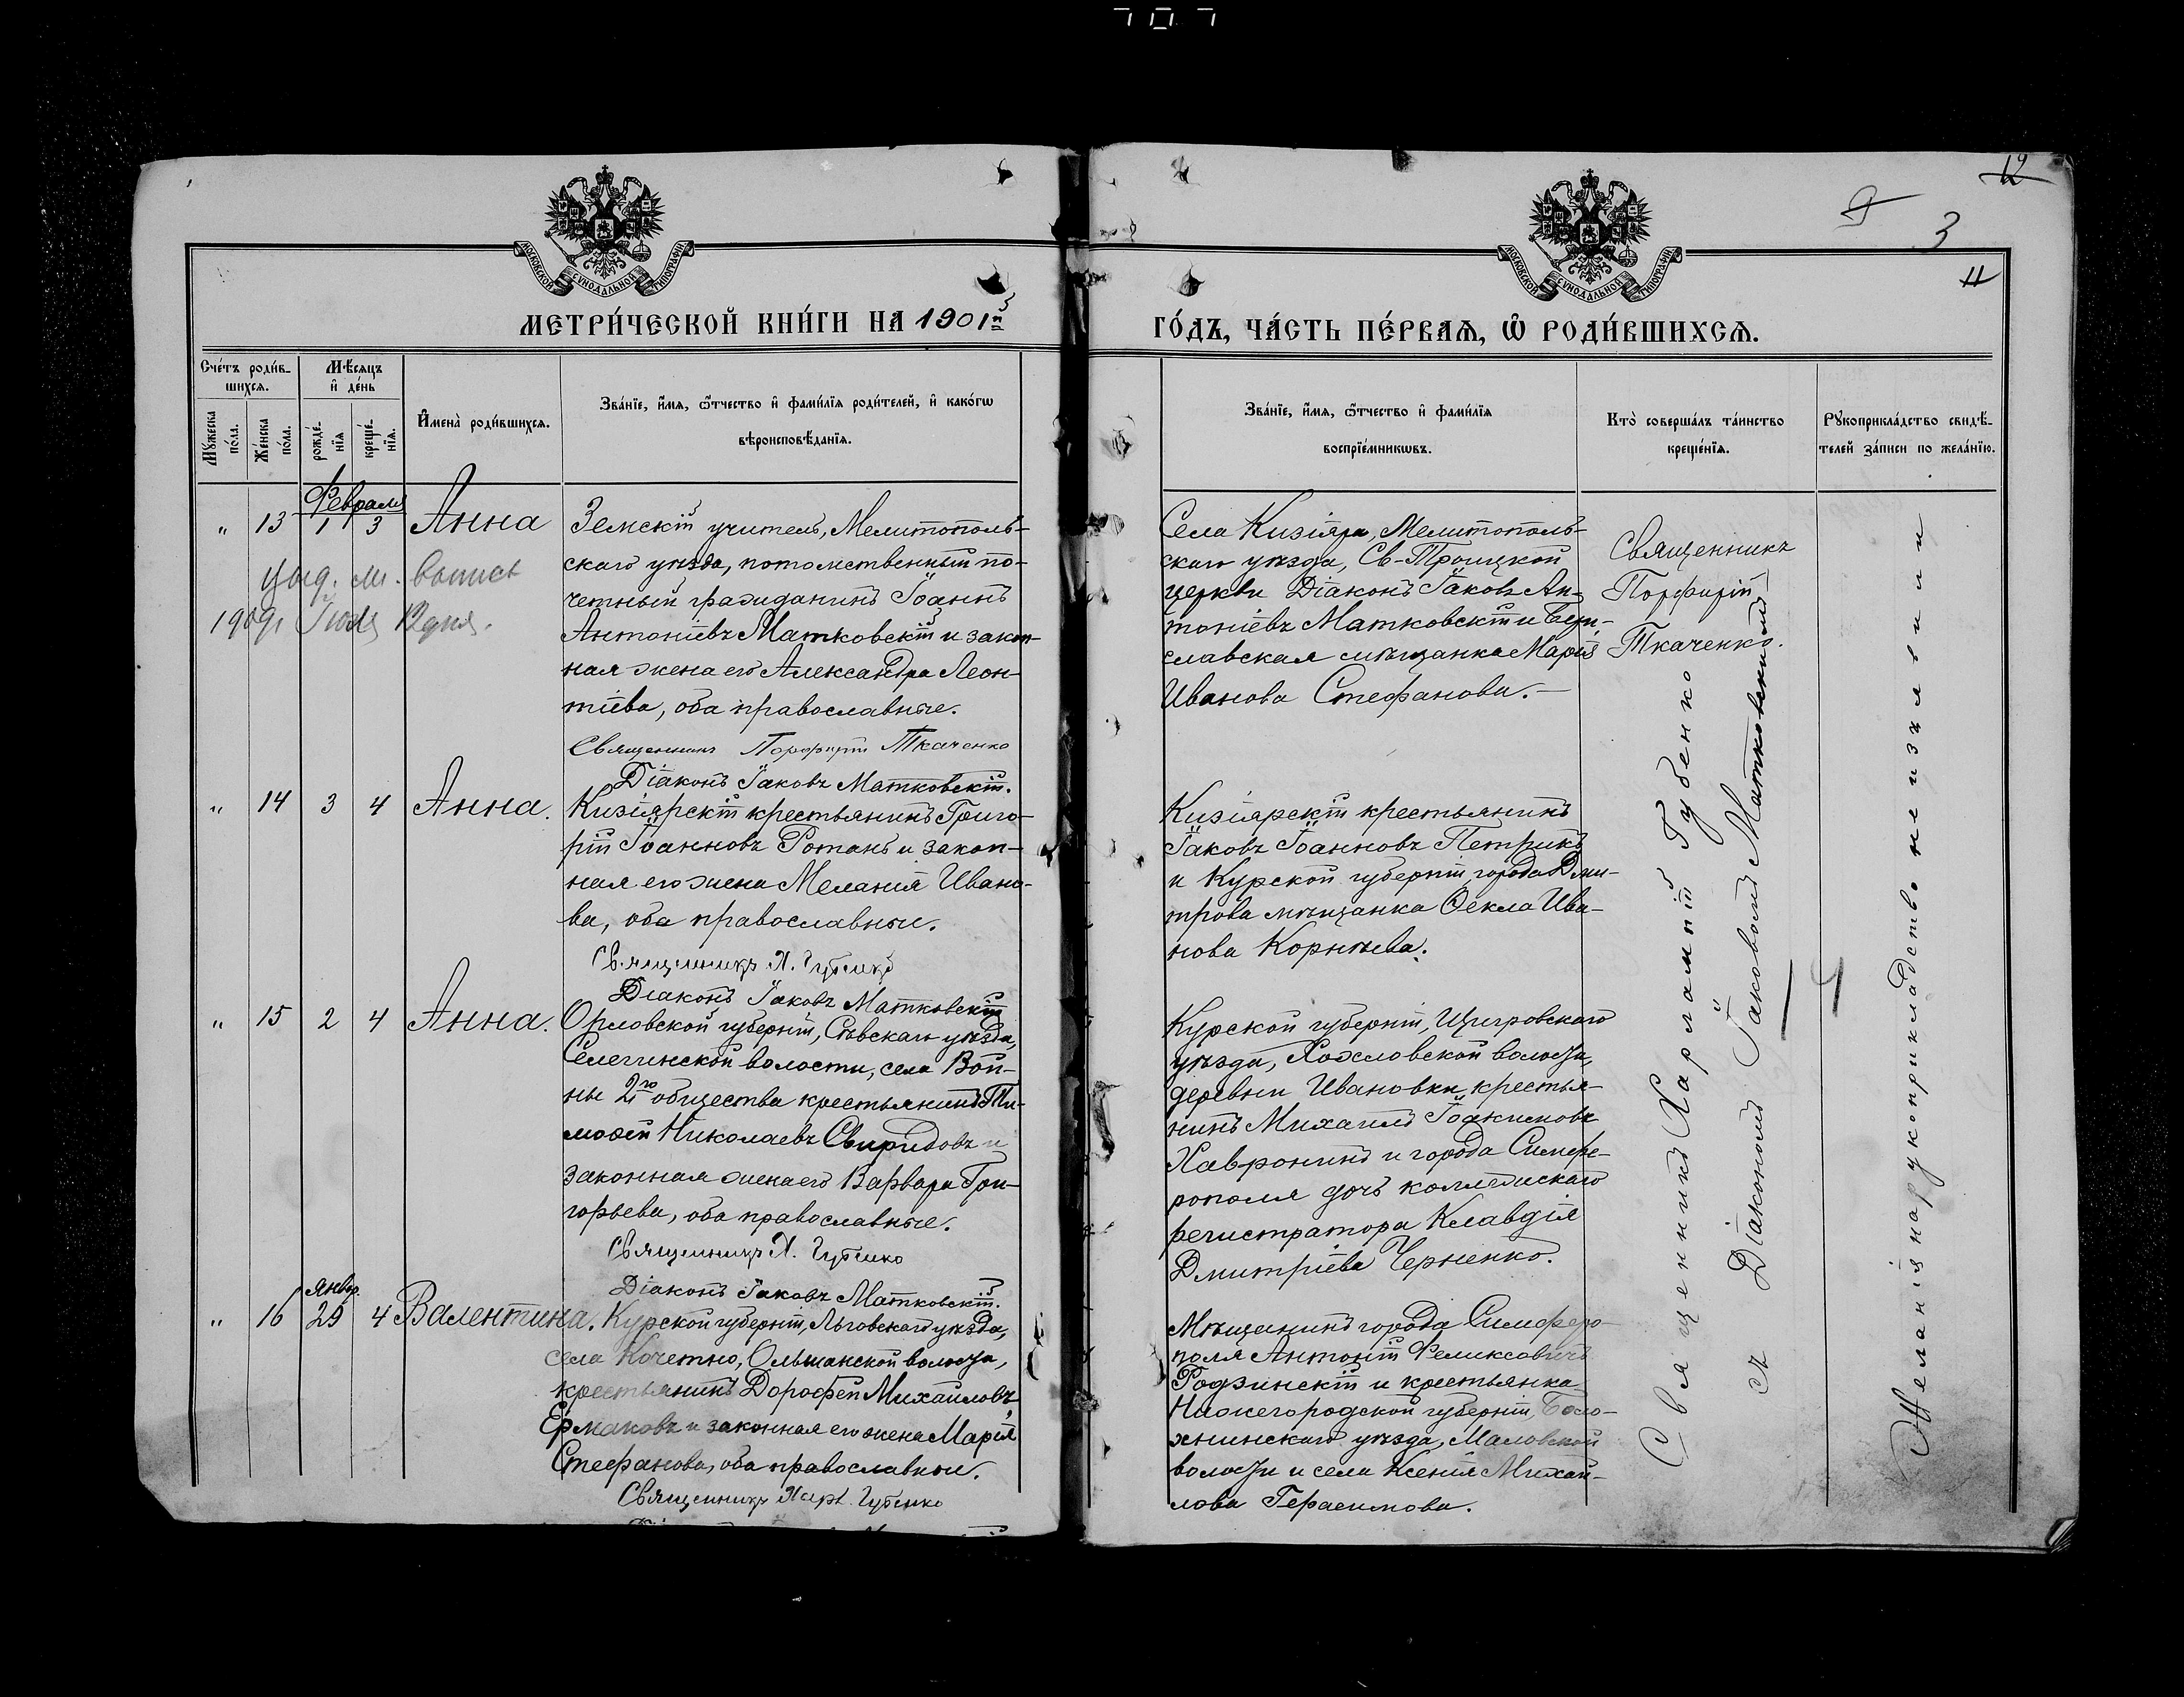 707
12
9
3
11
МОСКОВСКОЙ СУНОДАЛЬНОЙ ТИПОГРАФІИ
МОСКОВСКОЙ СУНОДАЛЬНОЙ ТИПОГРАФІИ
МЕТРИ́ЧЕСКОЙ КНИ́ГИ НА 1901й
ГО́ДЪ, ЧА́СТЬ ПЕ́РВАѦ, Ѡ РОДИ́ВШИХСѦ.
Сче́тъ роди́в-
шихсѧ.
Мѣ́сѧцъ
и де́нь
Мꙋ́жеска
по́ла.
Же́нска
по́ла.
рожде́-
нїѧ
креще́-
нїѧ.
И҆мена̀ роди́вшихсѧ.
Зва́нїе, и҆́мѧ, ѻ҆́тчество и҆ фами́лїѧ роди́телей, и҆ како́гѡ
вѣроисповѣ́данїѧ.
Зва́нїе, и҆́мѧ, ѻ҆́тчество и҆ фами́лїѧ
воспрїе́мникѡвъ.
Кто̀ соверша́лъ та́инство
креще́нїѧ.
Рꙋкоприкла́дство свидѣ́-
телей за́писи по жела́нїю.
Февраля
" 13 1 3 Анна
Земскій учитель, Мелитополь-
скаго уѣзда, потомственный по-
четный гражданинъ Іоаннъ
Антоніевъ Матковскій и закон-
ная жена его Александра Леон-
тіева, оба православные.
Священникъ Порфирій Ткаченко
Діаконъ Іаковъ Матковскій.
выд. м. выпись
1909г. Іюля 12 дня.
Села Кизіяра, Мелитополь-
скаго уѣзда, Св-Троицкой
церкви Діаконъ Іаковъ Ан-
тоніевъ Матковскій и Бери-
славская мѣщанка Марія
Иванова Стефанова.—
Священникъ
Порфирій
Ткаченко.
" 14 3 4 Анна.
Кизіярскій крестьянинъ Григо-
рій Іоанновъ Ротань и закон-
ная его жена Меланія Ивано-
ва, оба православные.
Священникъ Х. Губенко
Діаконъ Іаковъ Матковскій
Кизіярскій крестьянинъ
Іаковъ Іоанновъ Петрикъ
и Курской губерніи, города Дми-
трова мѣщанка Ѳекла Ива-
нова Корнѣева.
" 15 2 4 Анна.
Орловской губерніи, Сѣвскаго уѣзда,
Селегинской волости, села Вой-
ны 2го общества крестьянинъ Ти-
моѳей Николаевъ Свиридовъ и
законная жена его Варвара Гри-
горьева, оба православные.
Священникъ Х. Губенко
Діаконъ Іаковъ Матковскій.
Курской губерніи, Щигровскаго
уѣзда, волости,
деревни Ивановки, крестья-
нинъ Михаилъ Іоакимовъ
Хавронинъ и города Симфе-
рополя дочь коллежскаго
регистратора Клавдія
Дмитріева Черненко.
Янвр.
" 16 29 4 Валентина.
Курской губерніи, Льговскаго уѣзда,
села Кочетно, Ольшанской волости,
крестьянинъ Дорофей Михайловъ
Ермаковъ и законная его жена Марія
Стефанова, оба православные.
Священникъ Харл. Губенко
Мѣщанинъ города Симферо-
поля Антоній Феликсовичъ
Родзинскій и крестьянка
Нижегородской губерніи, Бала-
хнинскаго уѣзда,
волости и села Ксенія Михай-
лова Герасимова.
Священникъ Харлампій Губенко
съ Діакономъ Іаковомъ Матковскимъ
4
Желанія на рукоприкладство не изъявили